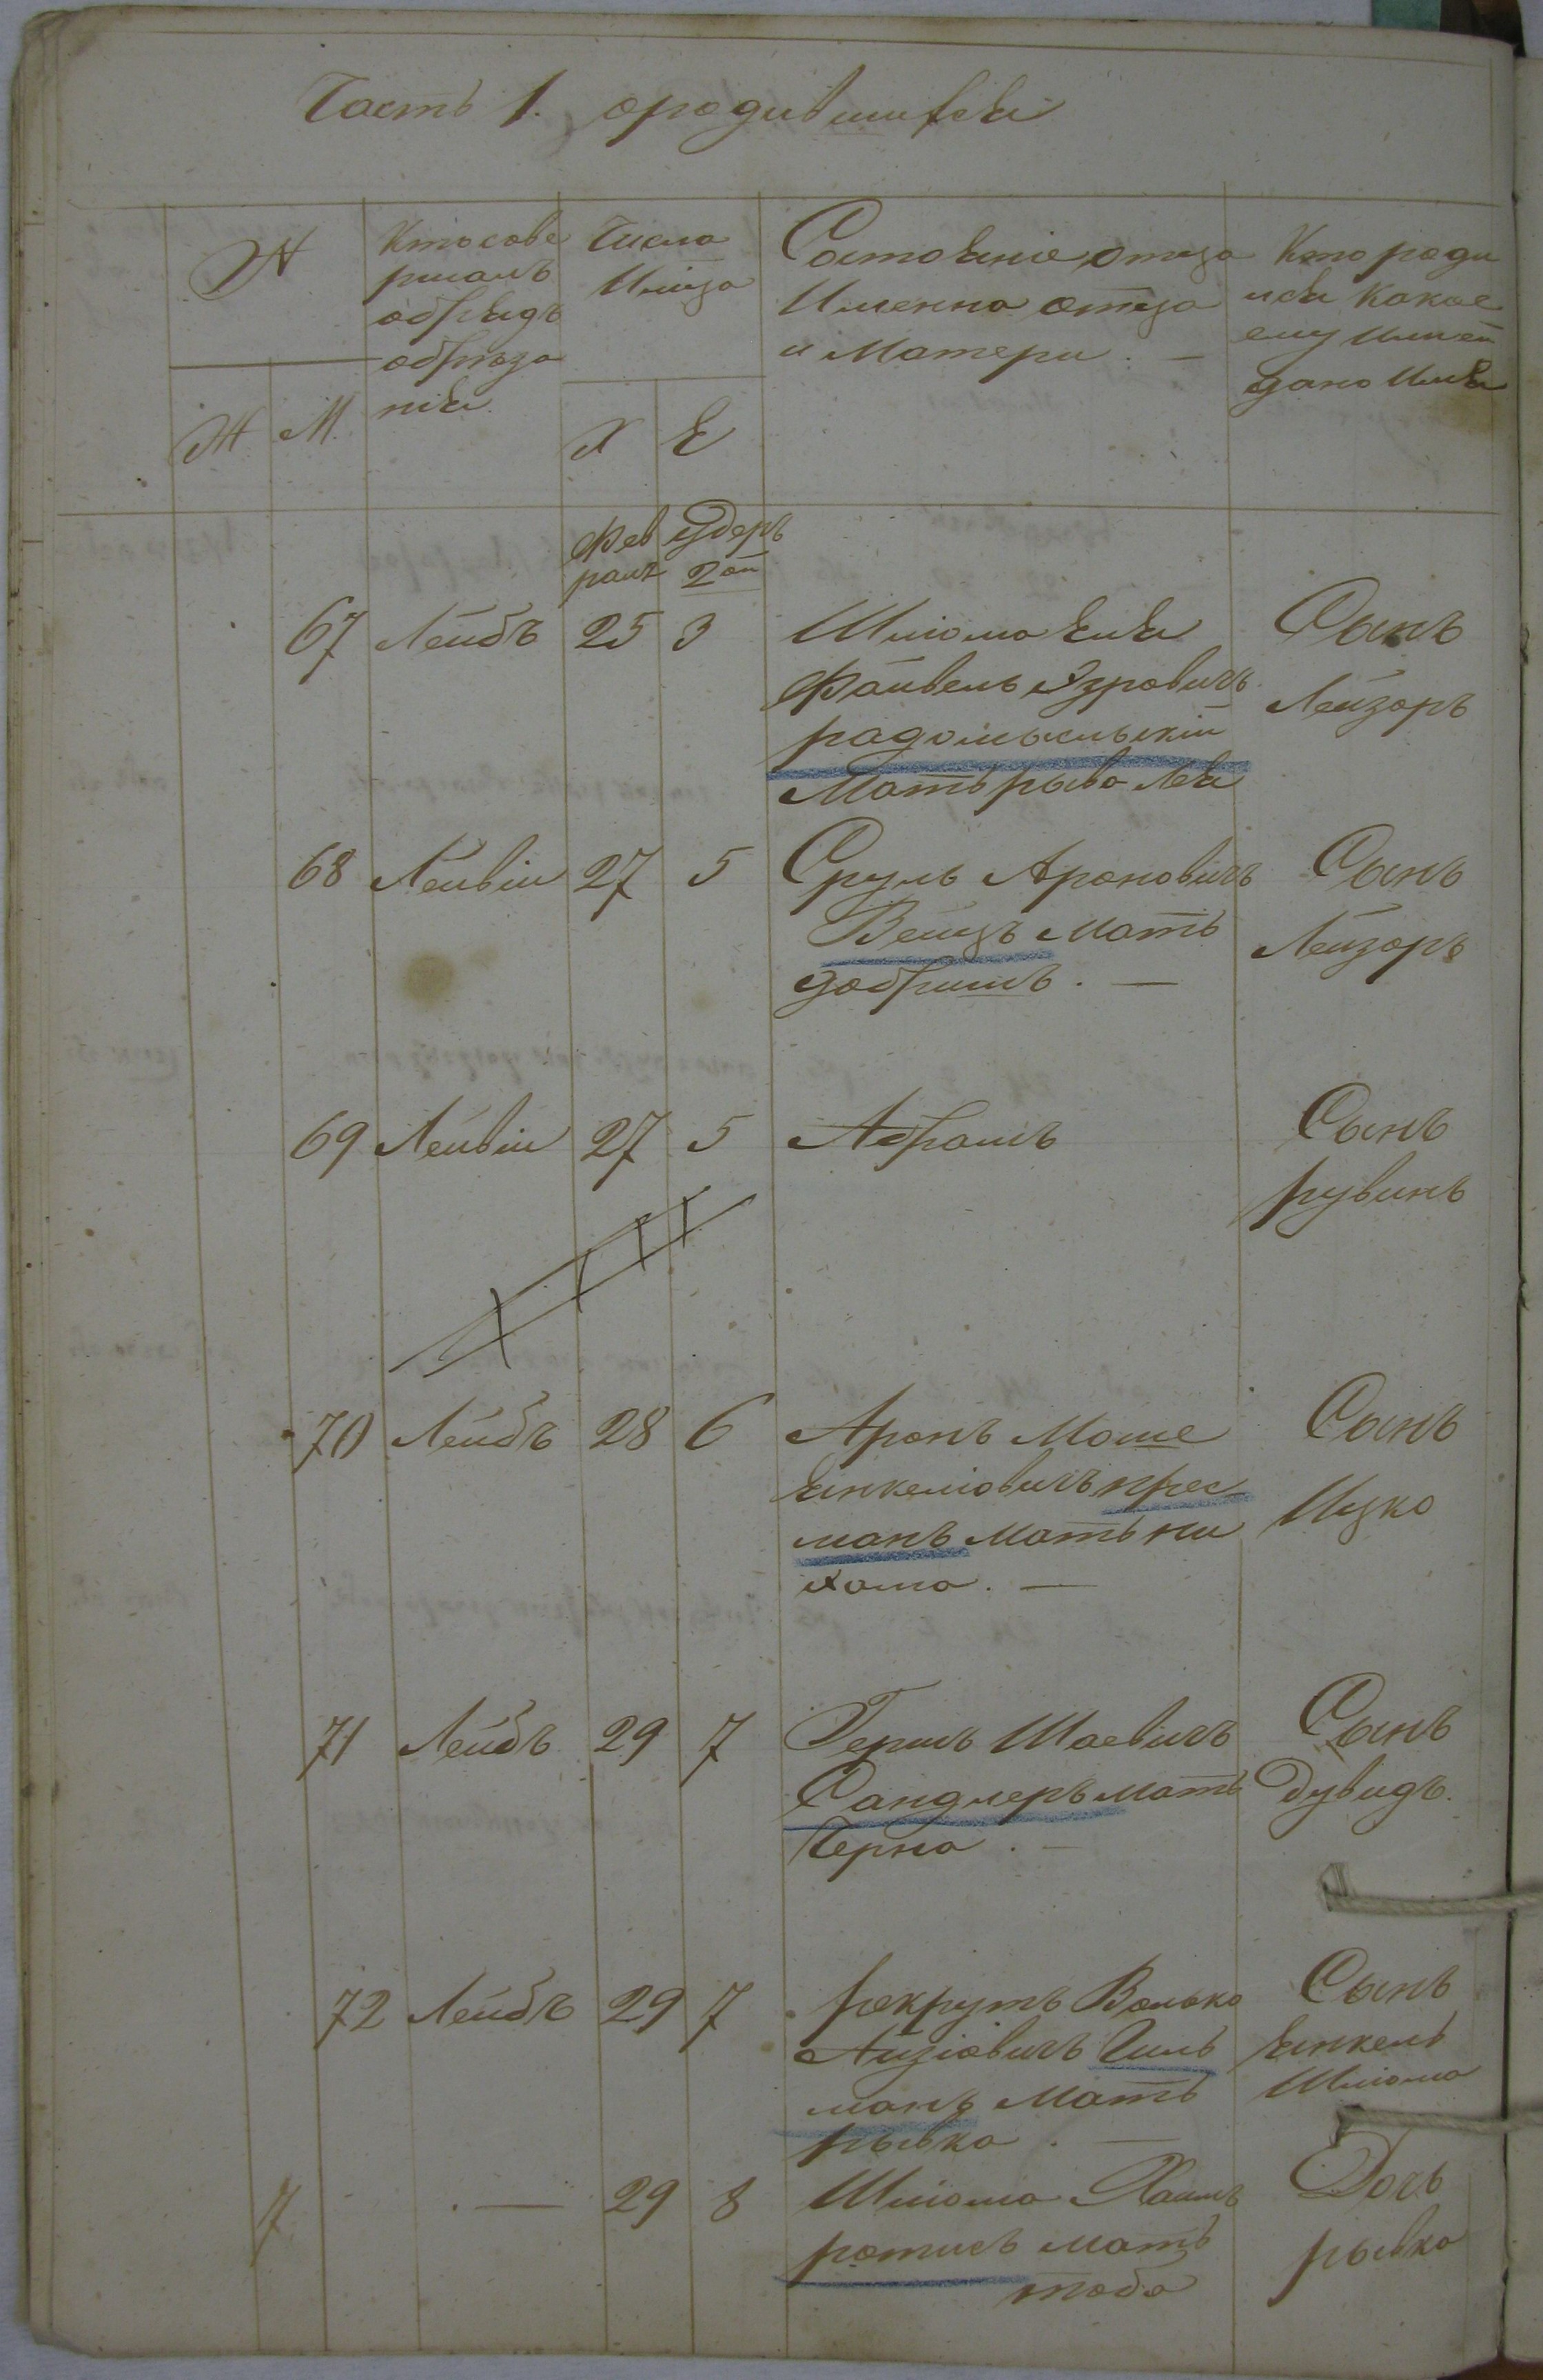 Часть 1. ородившихся
№
Ктосове
ршалъ
обрядъ
обреза
нія
Числа
Мѣца
Состояніе отца
Именна отца
и Матери. —
Кто роди
лся какое
ему
дано Имя
Ж М.
Х Е
Фев
раля
Удеръ
2ой
67 Лейбъ 25 3
Шліома Еля
Файвель Азровичъ
радомысльскій
Мать рыва Лея
Сынъ
Лейзоръ
68 Лейвіи 27 5
Сруль Ароновичъ
Вейцъ Мать
добришъ. —
Сынъ
Лейзоръ
69 Лейвіи 27 5 Абрамъ
Сынъ
рувинъ
70 Лейбъ 28 6
Аронъ Моше
Янкеліовичъ прес
манъ Мать ни
хама. —
Сынъ
Ицко
71 Лейбъ 29 7
Гершъ Шаевичъ
Сандлеръ мать
Черна. —
Сынъ
Дувидъ.
72 Лейбъ 29 7
рекрутъ Волько
Айзіовичъ Гиль
манъ Мать
рывка. —
Сынъ
Янкель
Шліома
7 . — 29 8
Шліома Хаимъ
ротисъ мать
тоба
Дочь
рывка